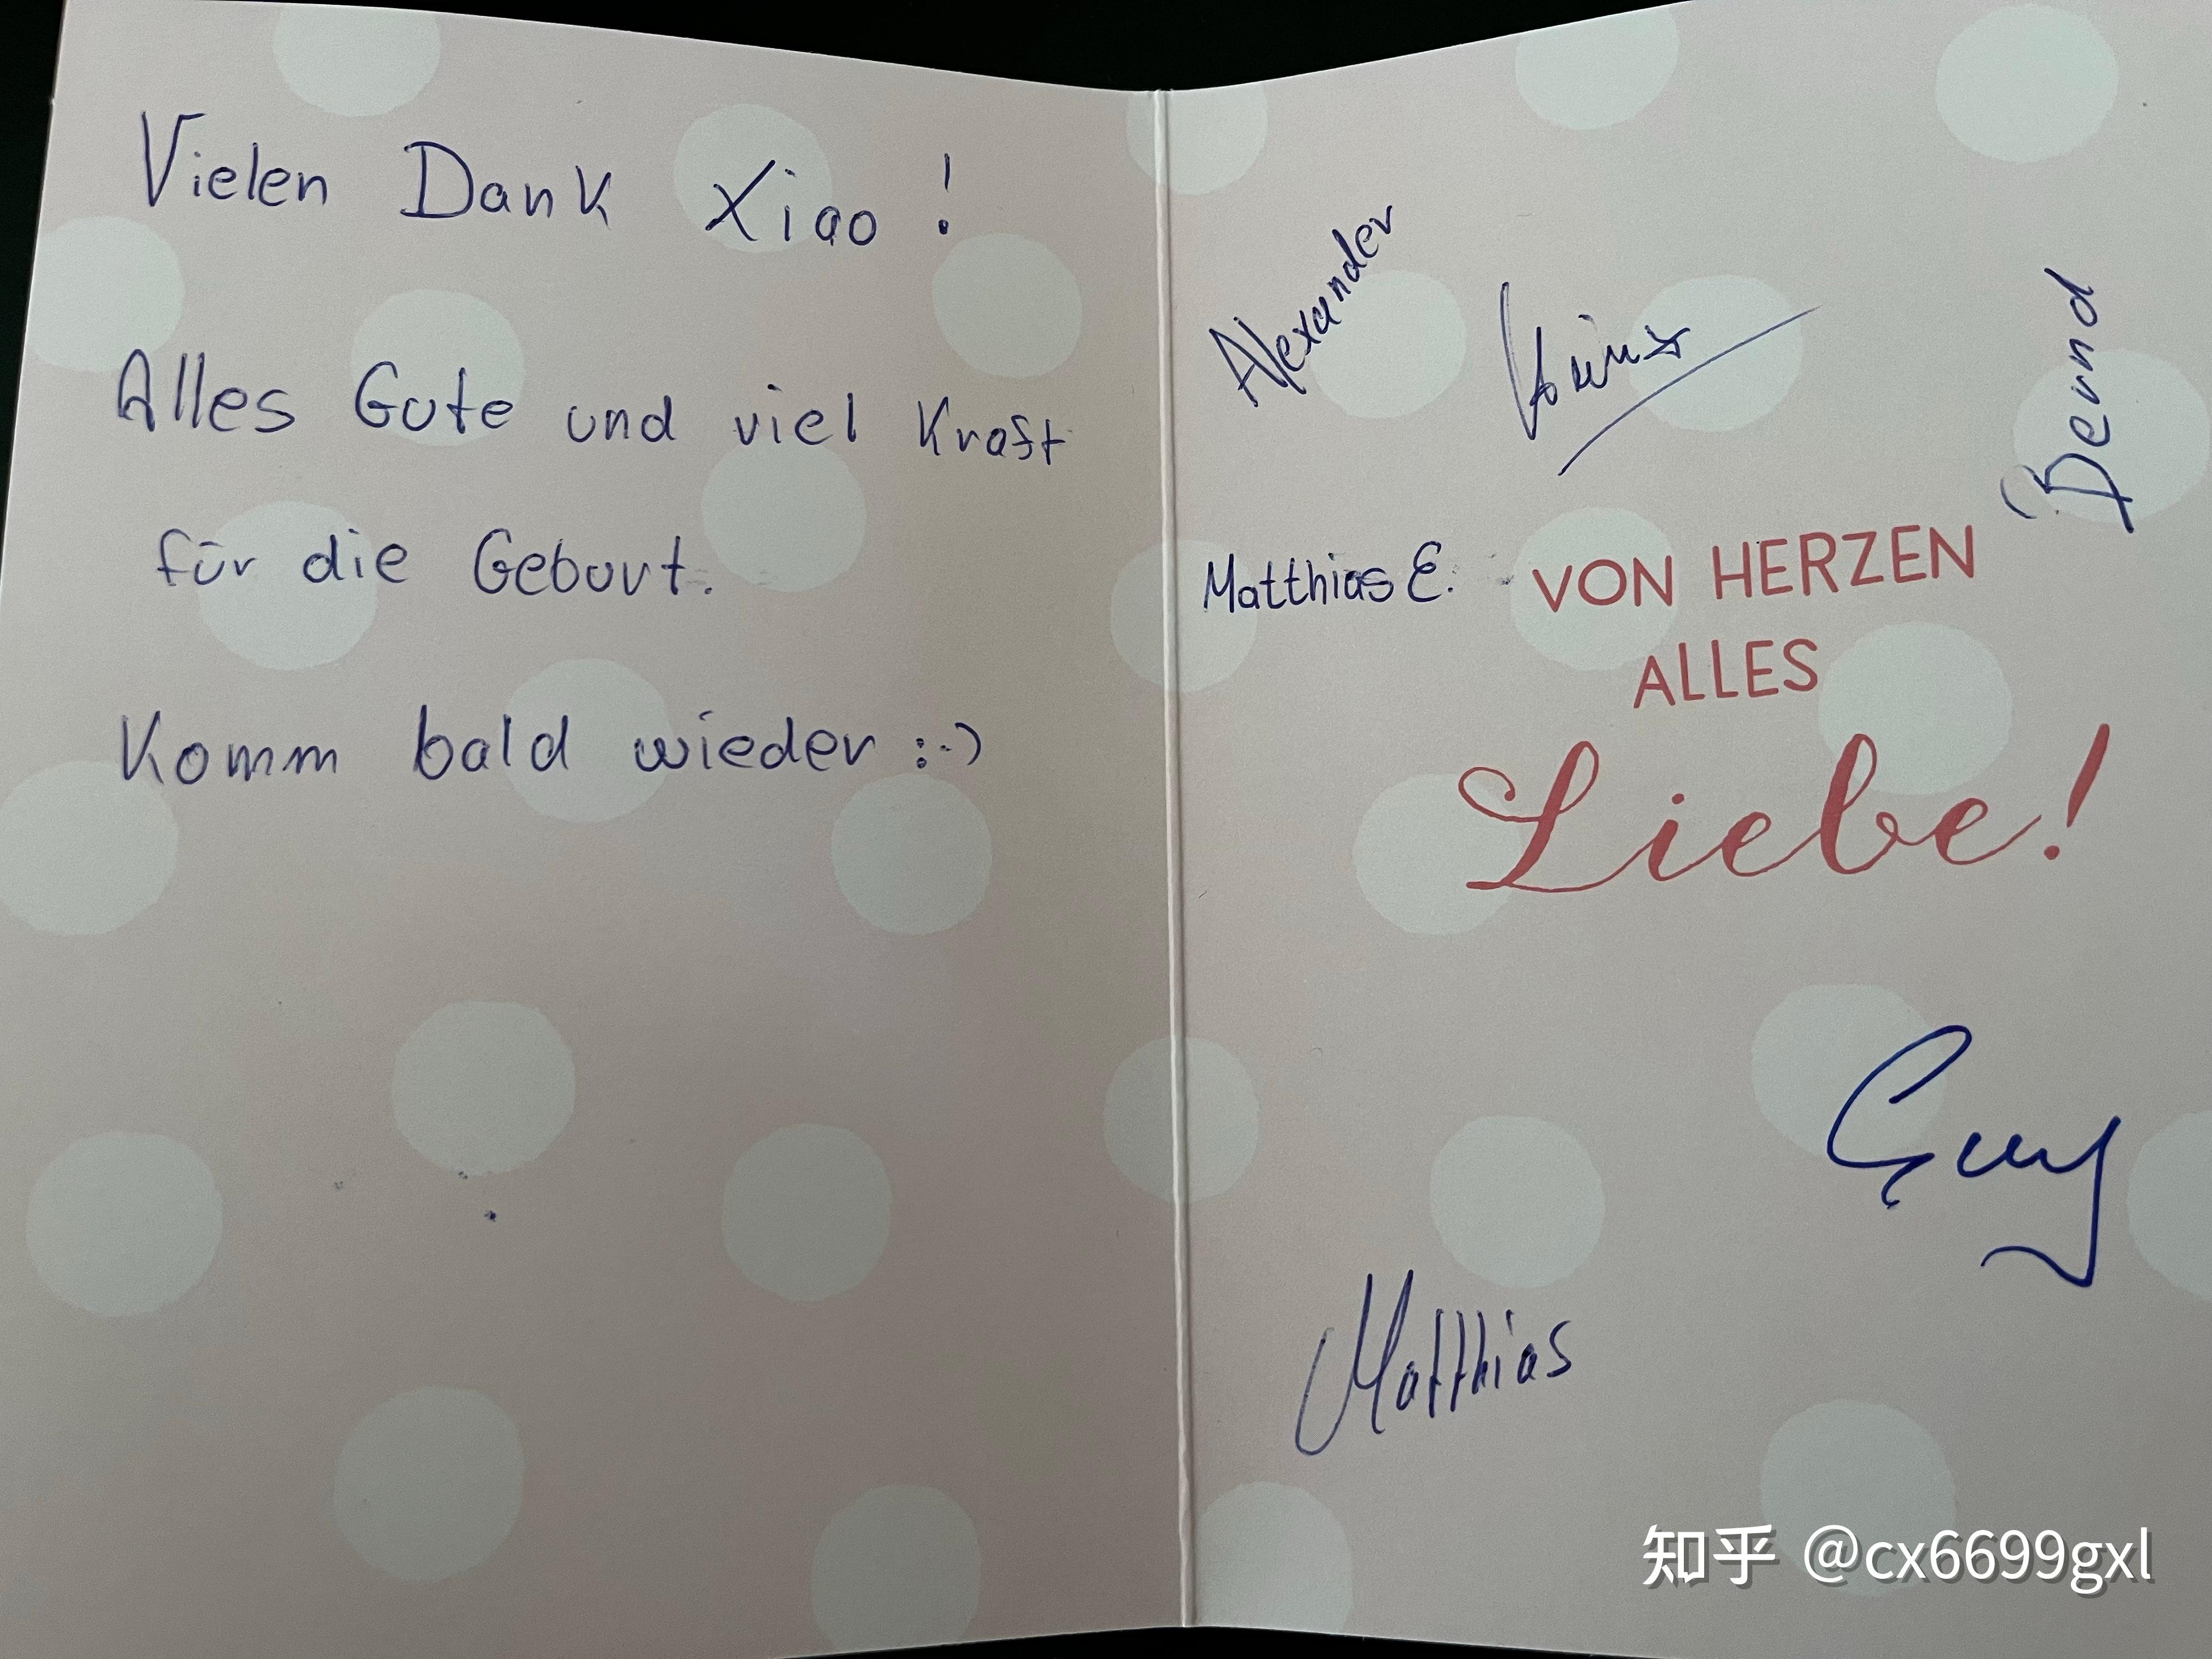 Vielen Dank Xiao !
Alles Gute und viel Kraft
für die Geburt.
Komm bald wieder :-)
Alexander
Bernd
Matthias E.
VON HERZEN
ALLES
Liebe!
Matthias
知乎 @cx6699gxl